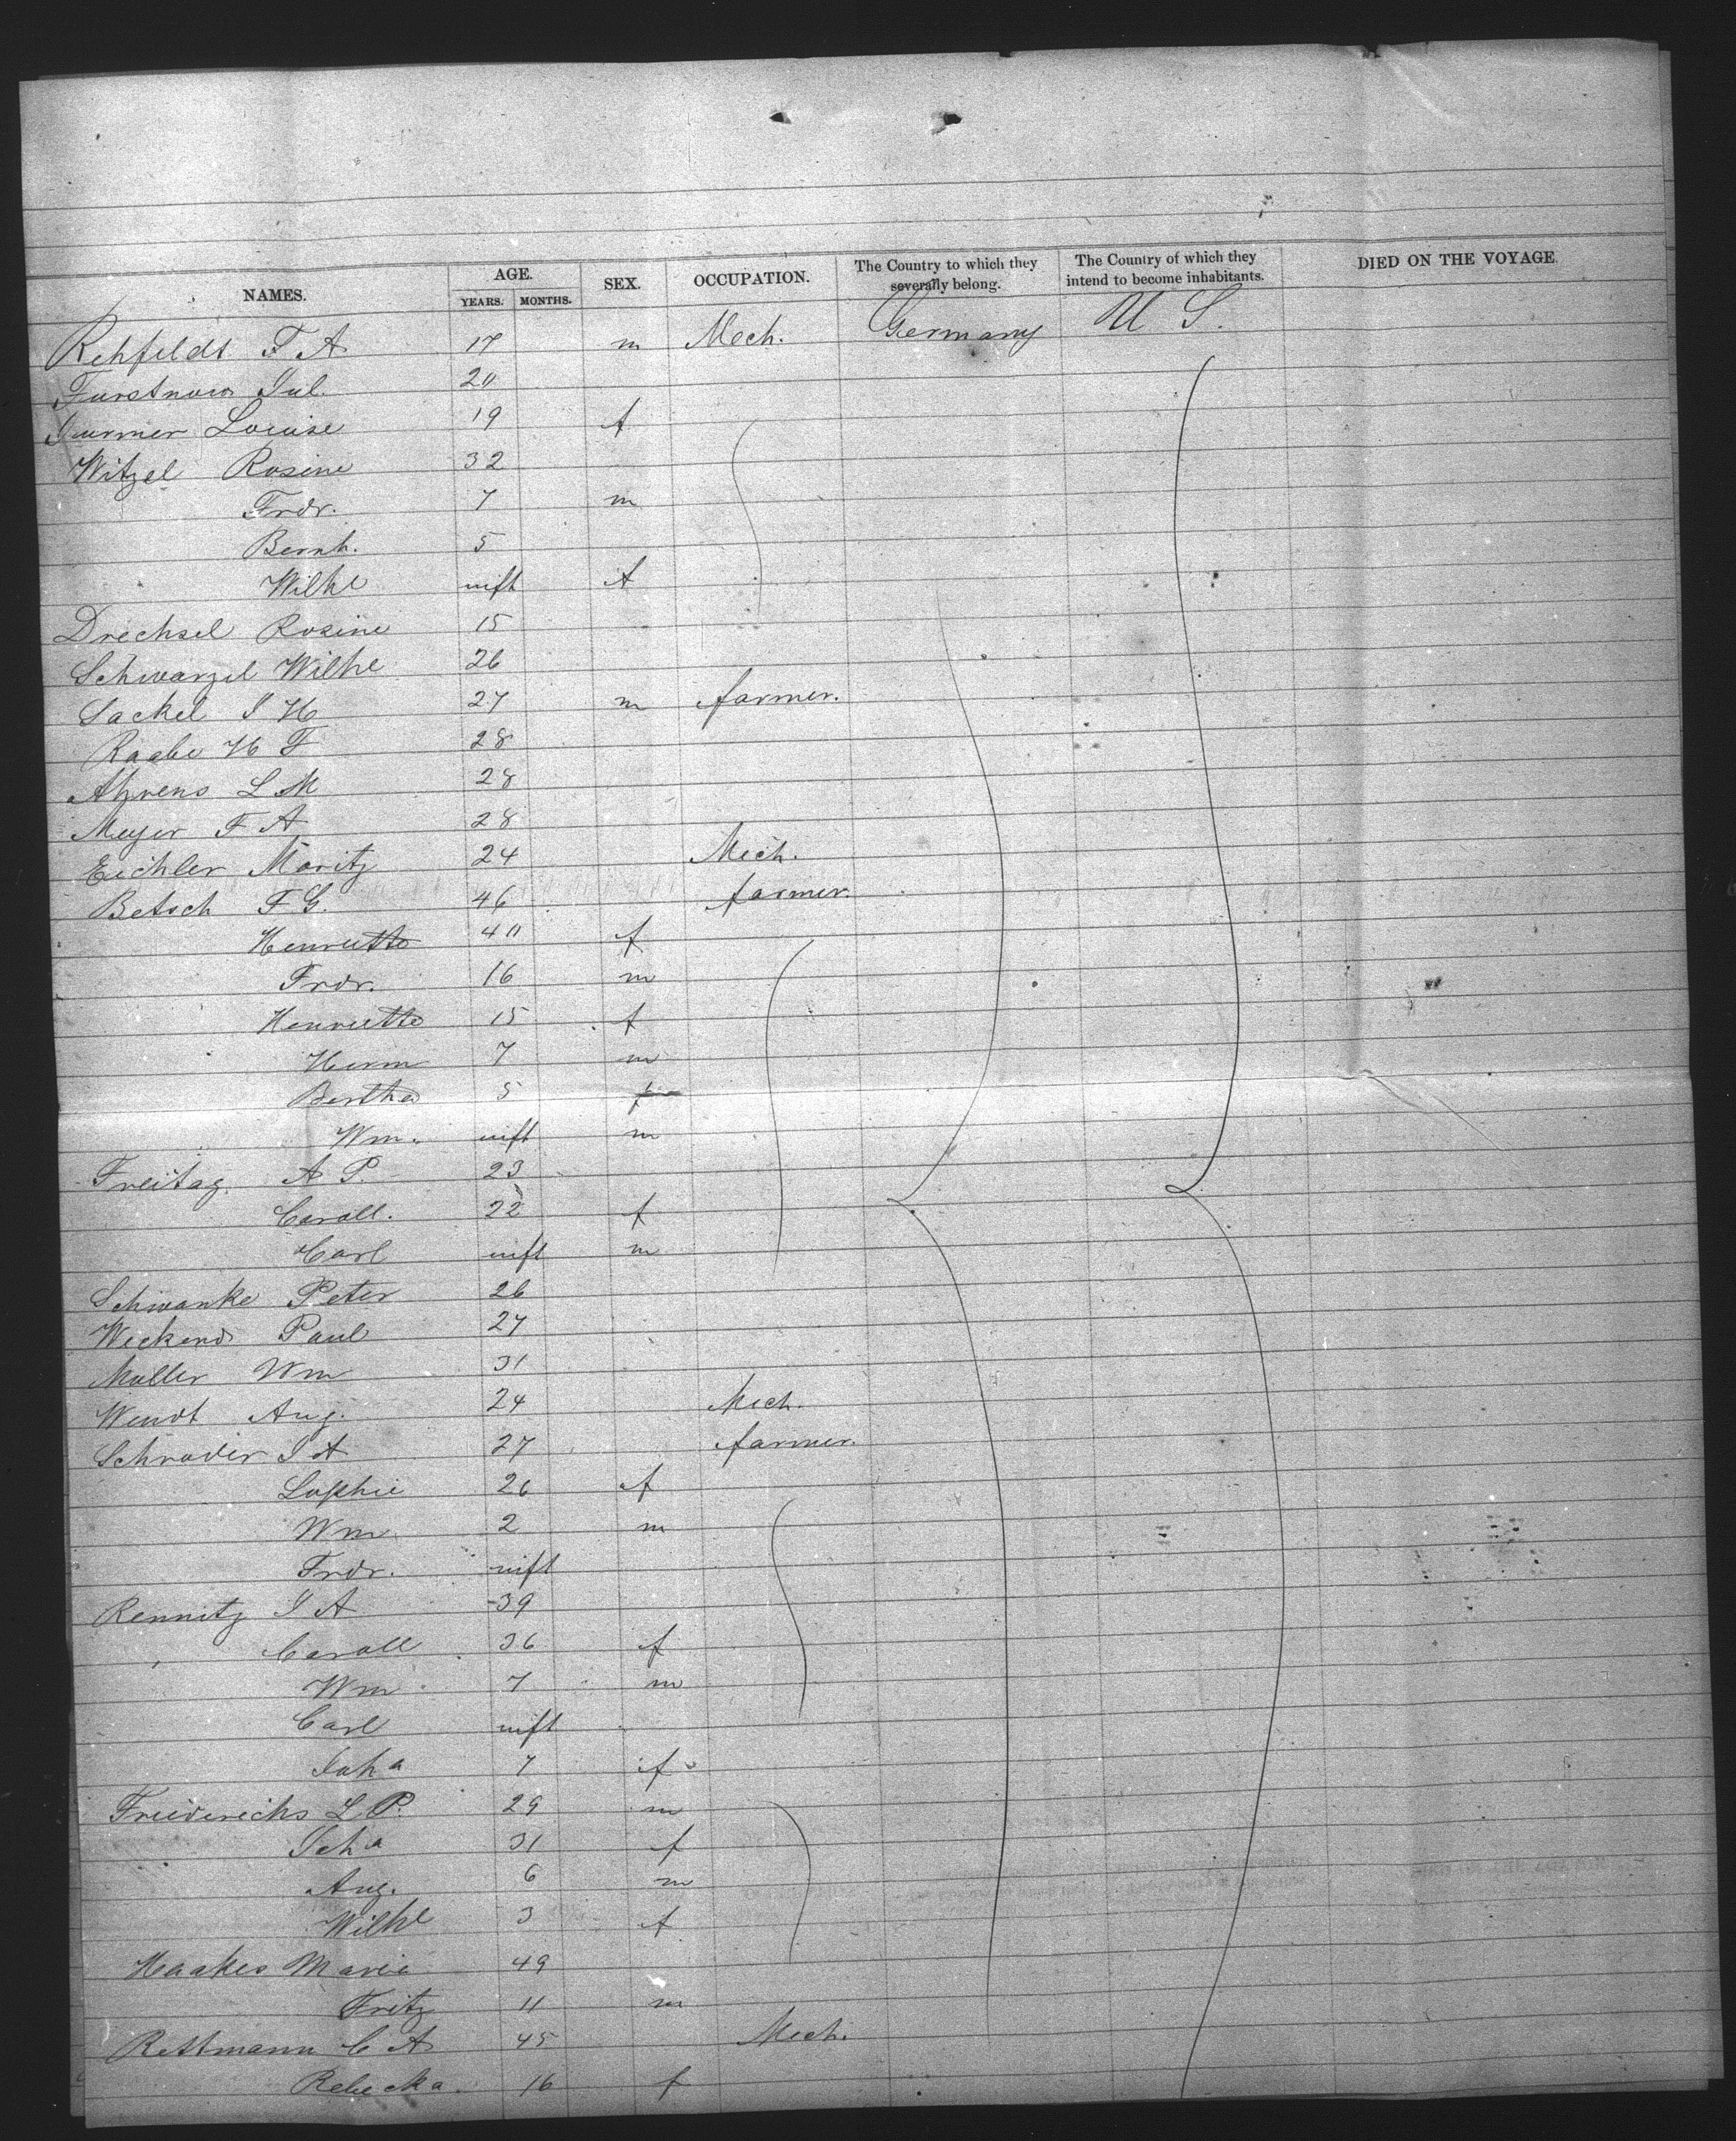 NAMES. AGE. YEARS. MONTHS. SEX. OCCUPATION. The Country to which they severally belong. The Country of which they intend to become inhabitants. DIED ON THE VOYAGE.
Rehfeldt F A 17 m Mech. Germany U S.
Furstnow Jul. 20
Louise 19 f
Witzel Rosine 32
Frdr. 7 m
Bernh. 5
Wilhe inft f
Drechsel Rosine 15
Schwarzel Wilhe 26
Sackel J H 27 m farmer.
Raabe H F 28
Ahrens L M 28
Meyer F A 28
Eichler Moritz 24 Mech.
Betsch F G. 46 farmer.
Henriette 40 f
Frdr. 16 m
Henriette 15 f
Herm 7 m
Bertha 5 f
Wm. inft m
Freitag A P. 23
Caroll. 22 f
Carl inft m
Schwanke Peter 26
Weckend Paul 27
Muller Wm 31
Wendt Aug. 24 Mech.
Schroder J A 27 farmer.
Sophie 26 f
Wm 2 m
Frdr. inft
Rennitz J A 39
" Caroll 36 f
Wm 7 m
Carl inft
Joha 7 f
Friederichs L P. 29 m
Joha 31 f
Aug. 6 m
Wilhe 3 f
Haakes Marie 49
Fritz 11 m
Rettmann C A 45 Mech.
Rebecka 16 f